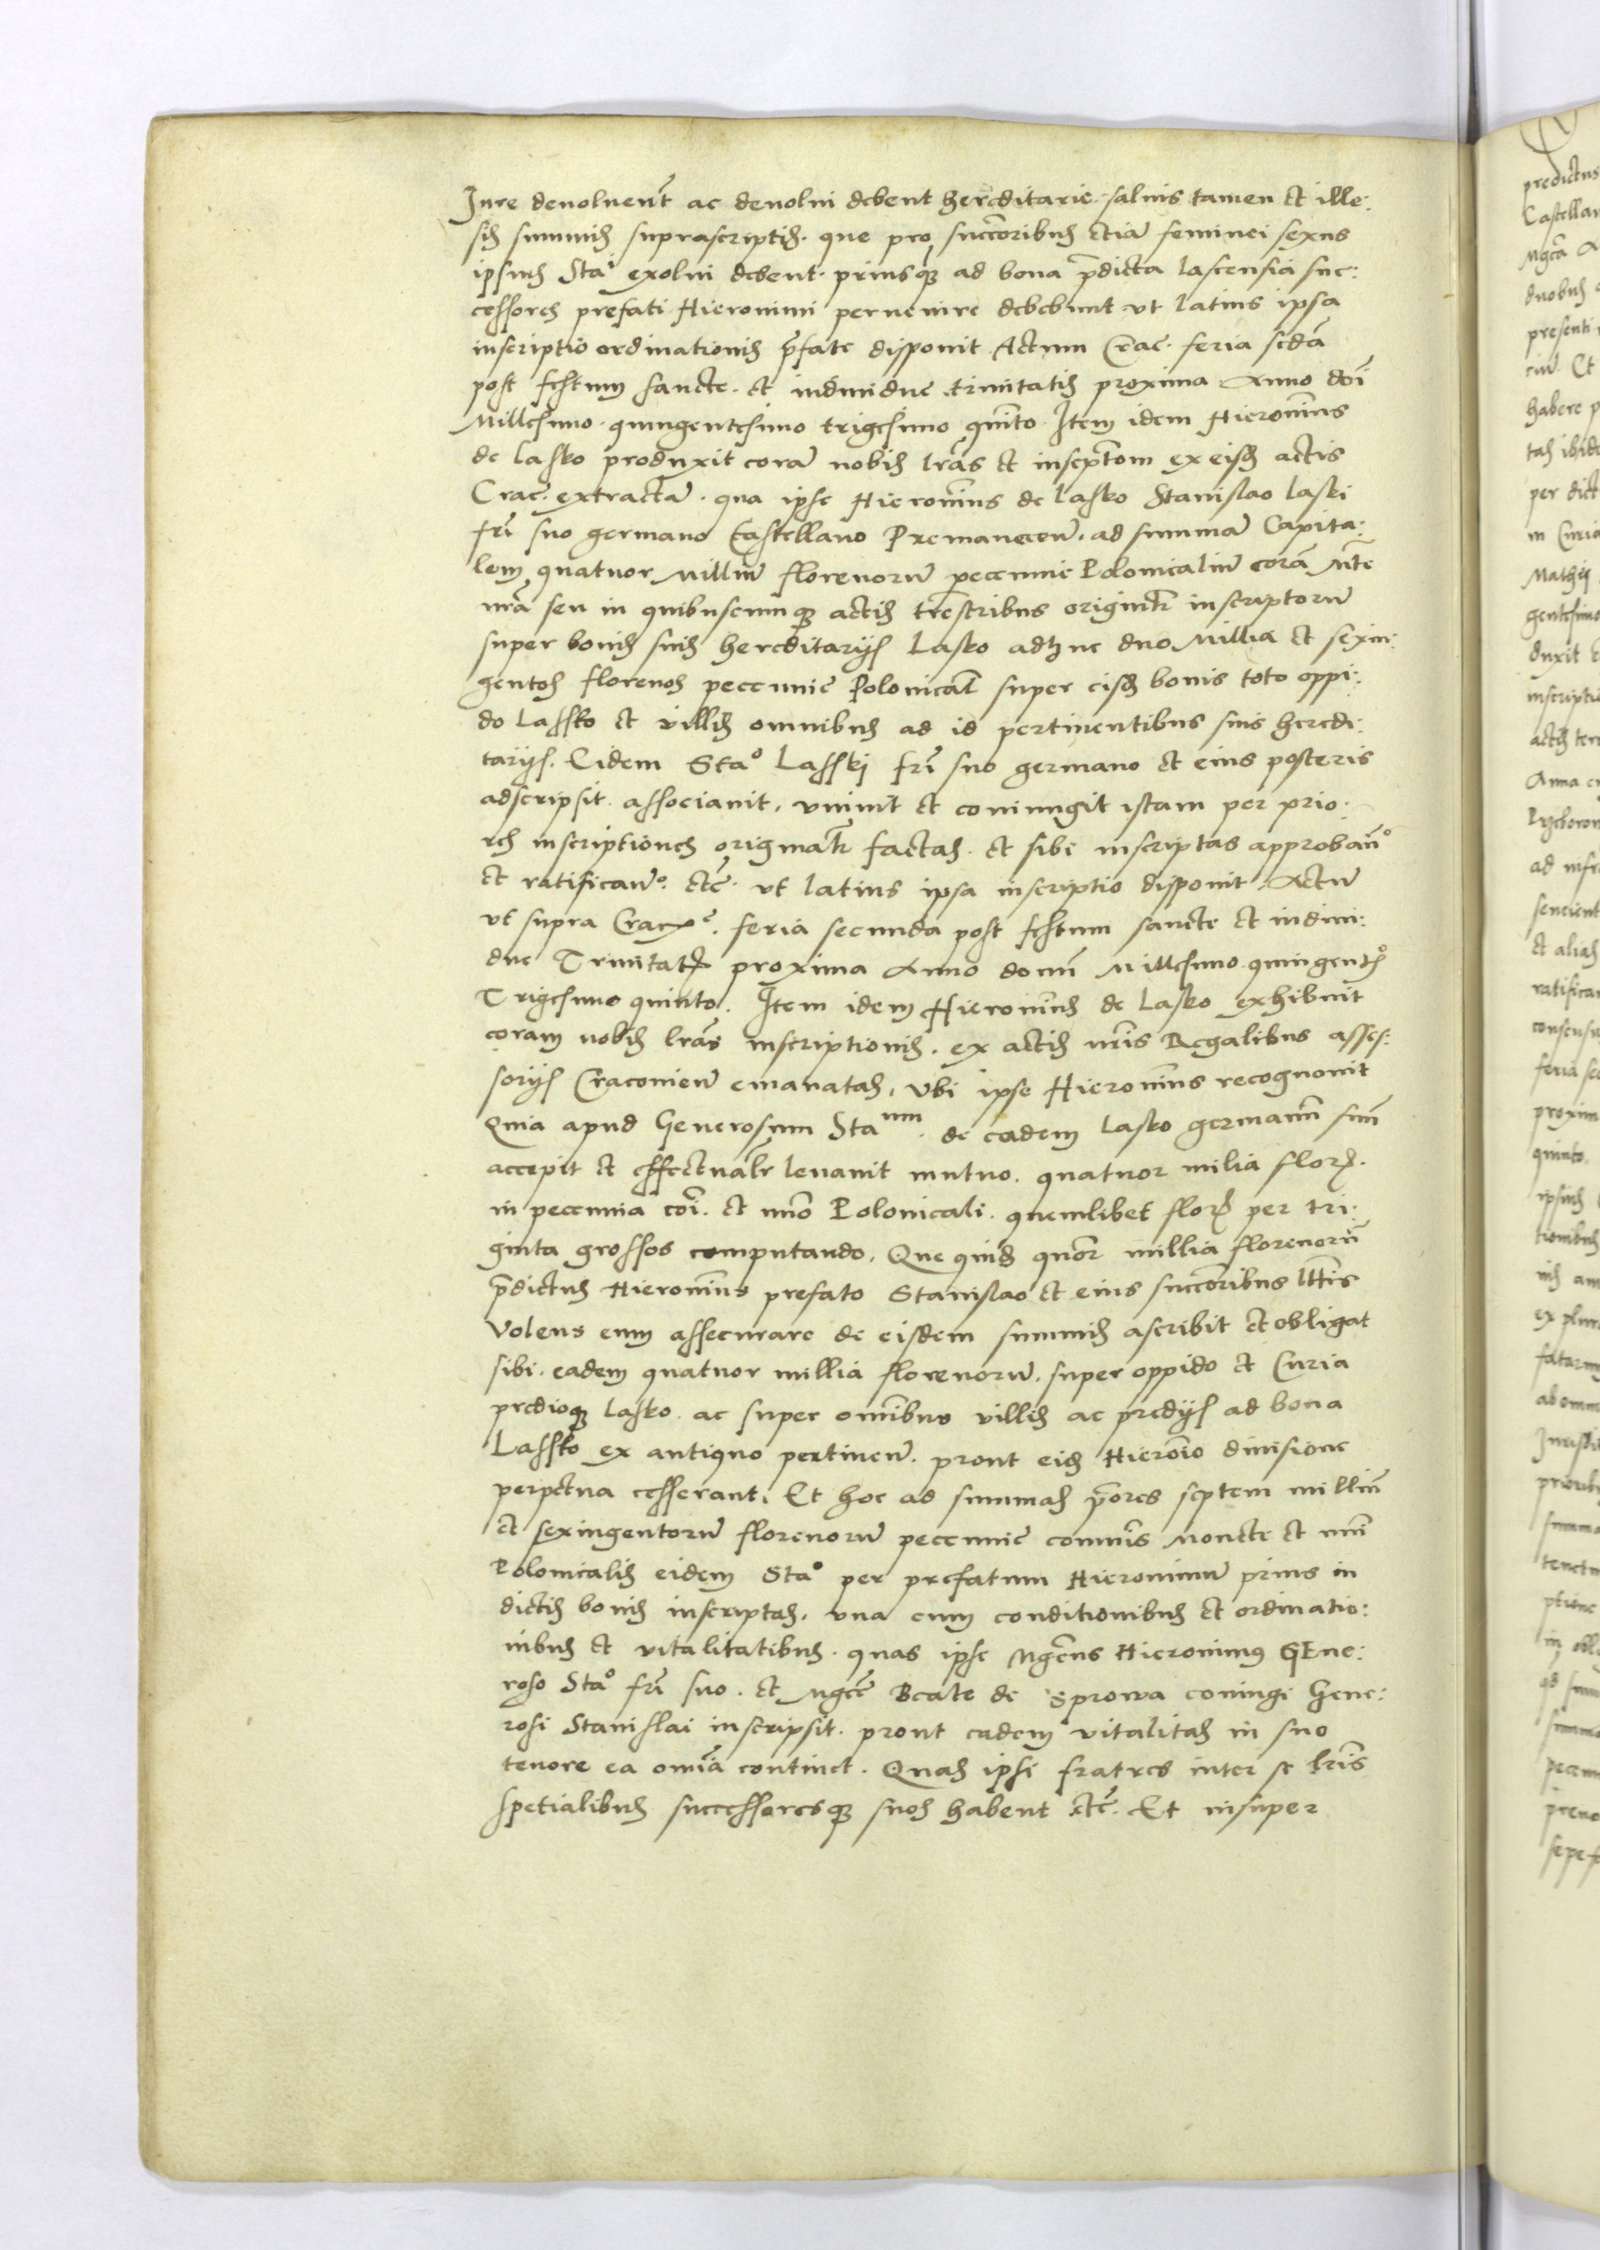 Jure devoluent̃ ac devolui debent hereditarie. salvis tamen et ille:
sis summis suprascriptis. que pro succẽoribus etiã feminei sexus
ipsius Staⁱ exolvi debent. priusq̨ ad bona p̃dicta lascensia suc:
cessores prefati Hieronimi pervenire debebunt ut latius ipsa
inscriptio ordinationis p̃fate disponit Actum Crac̃. feria scd̃a
post festum sancte. et individue trinitatis proxima Anno dñi
Millesimo. quingentesimo trigesimo quinto. Item idem Hieronim̃s
de Lasko produxit corã nobis lr̃as et inscpt̃iom ex eisd̃ actis
Crac̃. extractã. qua ipse Hieronim̃s de Lasko Stanislao Laski
fr̃i suo germano Castellano Premanczeñ. ad summã Capita:
lem quatuor Milliũ florenorũ peccunie Polonicaliũ corã Mt̃e
nr̃a seu in quibuscumq̨ actis trẽstribus originalr̃ inscriptorũ
super bonis suis hereditarijs Lasko adhuc duo Millia et sexin:
gentos florenos peccunie Polonical̃ super eisd̃ bonis toto oppi:
do Lassko et villis omnibus ad id pertinentibus suis heredi:
tarijs. Eidem Sta° Lasski fr̃i suo germano et eius posteris
adscripsit. associavit. univit et coniungit istam per prio:
res inscriptiones originalr̃ factas. et sibi inscriptas approbañ°
et ratificañ°. etc̃. ut latius ipsa inscriptio disponit. Actũ
ut supra Crac̃. feria secunda post festum sancte et indivi:
due Trinitatis proxima Anno domĩ Millesimo. quingentes°
Trigesimo quinto. Item idem Hieronim̃s de Lasko exhibuit
coram nobis lr̃as inscriptionis. ex actis nr̃is Regalibus asses:
sorijs Cracovieñ emanatas. ubi ipse Hieronim̃s recognovit
Quia apud Generosum Staⁿᵘᵐ. de eadem Lasko germanũ suũ
accepit et effectualr̃ levavit mutuo. quatuor milia floreñ.
in peccunia cõi. et nũo Polonicali. quemlibet floreñ per tri:
ginta grossos computando. Que quid̃ quõr millia florenorũ
p̃dictus Hieronim̃s prefato Stanislao et eius succẽoribus ltt̃is
Volens eum assecurare de eisdem summis ascribit et obligat
sibi. eadem quatuor millia florenorũ. super oppido et Curia
predioq̨ Lasko. ac super omĩbus villis ac predijs ad bona
Lassko ex antiquo pertineñ. prout eid̃ Hieronĩo divisione
perpetua cesserant. Et hoc ad summas p̃ores septem milliũ
et sexingentorũ florenorũ peccunie comunis Monete et nũi
Polonicalis eidem Sta° per prefatum Hieronimũ prius in
dictis bonis inscriptas. una cum conditionibus et ordinatio:
nibus et vitalitatibus. quas ipse Mgc̃us Hieronimus GEne:
roso Sta° fr̃i suo. et Mgc̃e Beate de Sprowa coniugi Gene:
rosi Stanislai inscripsit. prout eadem vitalitas in suo
tenore ea omĩa continet. Quas ipsi fratres inter se lr̃is
spetialibus successoresq̨ suos habent etc̃. Et insuper